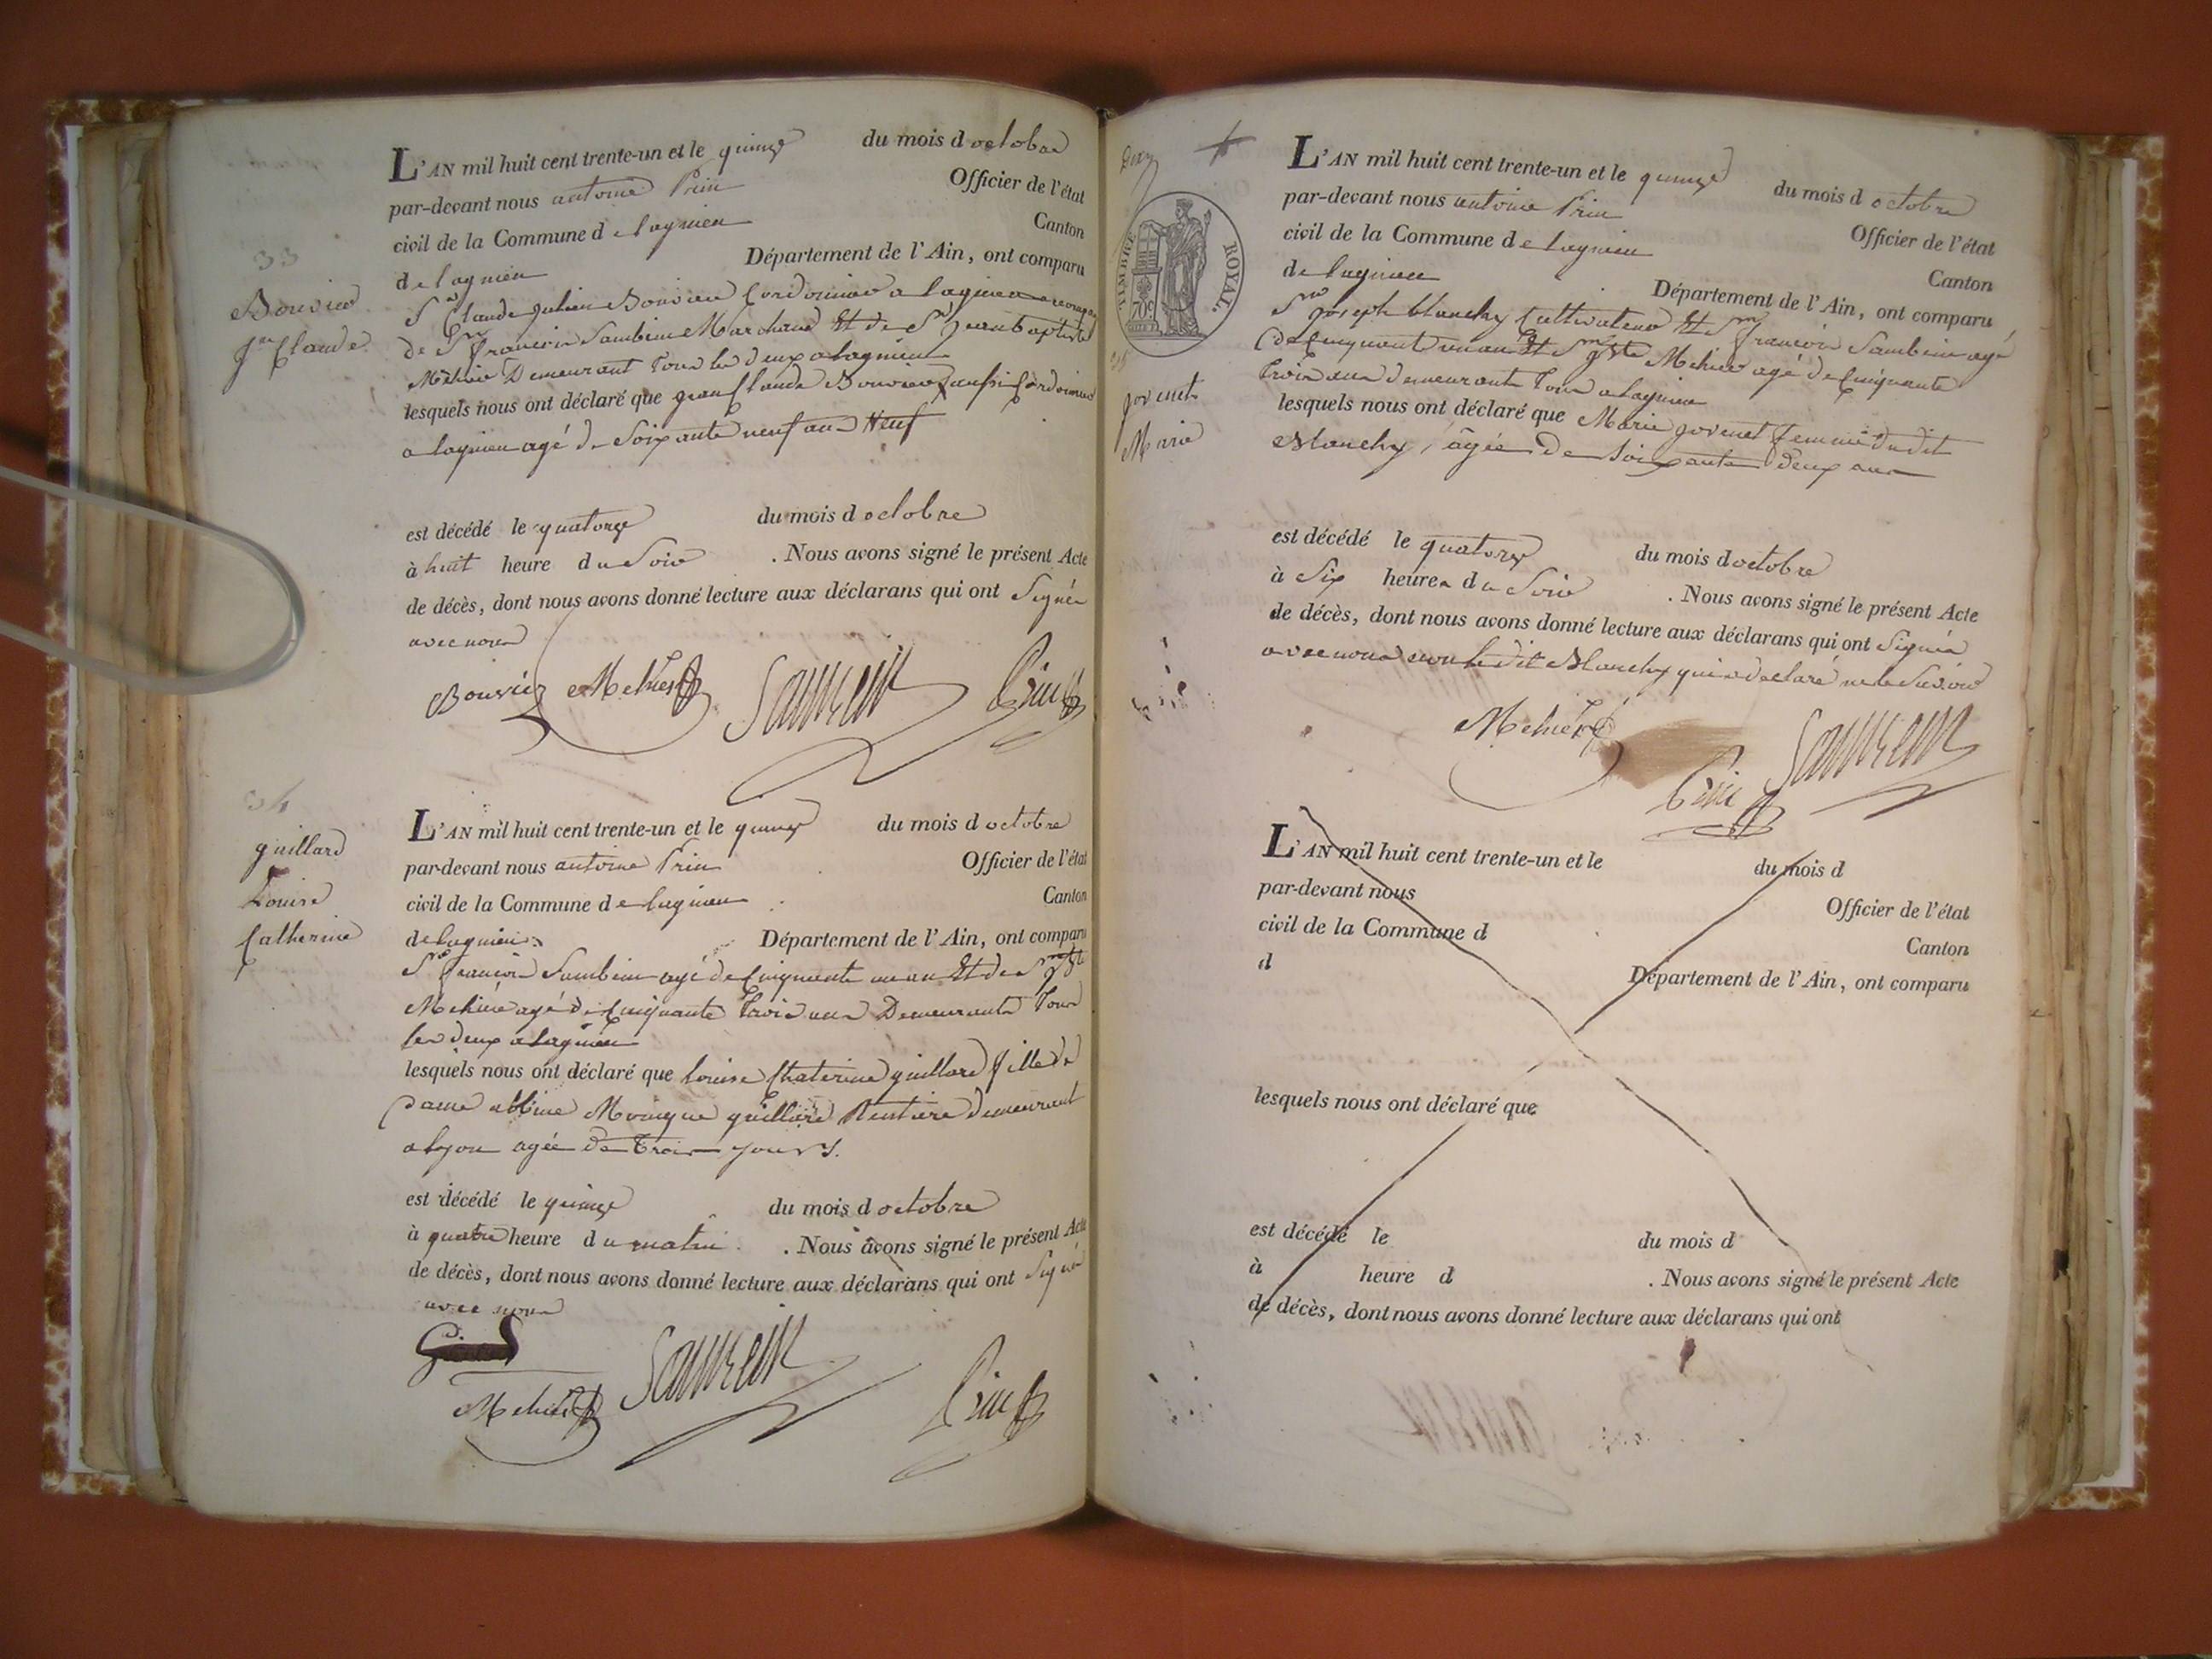 33
Bouvier
Jn Claude
L'AN mil huit cent trente-un et le quinze du mois d octobre
par-devant nous antoine Prin Officier de l'état
civil de la Commune d e lagnieu Canton
de lagnieu Département de l'Ain, ont comparu
Sr Claude Julien Bouvier Cordonnier a lagnieu
de Sr francois Sambin Marchand Et de Sr Jean baptiste
Mehier Demeurant Tous les deux a lagnieu
lesquels nous ont déclaré que jean Claude Bouvier aussi Cordonnier
a lagnieu agé de Soixante neuf ans
est décédé le quatorze du mois d octobre
à huit heure du Soir . Nous avons signé le présent Acte
de décès, dont nous avons donné lecture aux déclarans qui ont Signés
avec nous
Bouvier Mehier Prin
34
guillard
Louise
Catherine
L'AN mil huit cent trente-un et le quinze du mois d octobre
par-devant nous antoine Prin Officier de l'état
civil de la Commune d e lagnieu Canton
de lagnieu Département de l'Ain, ont comparu
Sr francois Sambin agé de Cinquante un an Et de Sr jn Bte
Mehier agé de Cinquante Trois ans Demeurants Tous
les deux a lagnieu
lesquels nous ont déclaré que Louise Chaterine guillard fille de
Dame guillard Rentiere demeurant
a lyon agée de Trois jours.
est décédé le quinze du mois d octobre
à quatre heure du matin . Nous avons signé le présent Acte
de décès, dont nous avons donné lecture aux déclarans qui ont Signé
avec nous
Mehier Prin
TIMBRE ROYAL.
70c.
jovenet
Marie
L'AN mil huit cent trente-un et le quinze du mois d octobre
par-devant nous antoine Prin Officier de l'état
civil de la Commune d e lagnieu Canton
de lagnieu Département de l'Ain, ont comparu
Sr Joseph blanchy Cultivateur Et Sr francois Sambin agé
de Cinquante un an Et Sr jn Bte Mehier agé de Cinquante
trois ans demeurants Tous a lagnieu
lesquels nous ont déclaré que Marie jovenet femme dudit
Blanchy, âgée de Soixante Deux ans
est décédé le quatorze du mois d octobre
à Six heures du Soir . Nous avons signé le présent Acte
de décès, dont nous avons donné lecture aux déclarans qui ont Signés
avec nous non ledit Blanchy qui a déclaré ne le Savoir
Mehier Prin
L'AN mil huit cent trente-un et le du mois d
par-devant nous Officier de l'état
civil de la Commune d Canton
d Département de l'Ain, ont comparu
lesquels nous ont déclaré que
est décédé le du mois d
à heure d . Nous avons signé le présent Acte
de décès, dont nous avons donné lecture aux déclarans qui ont